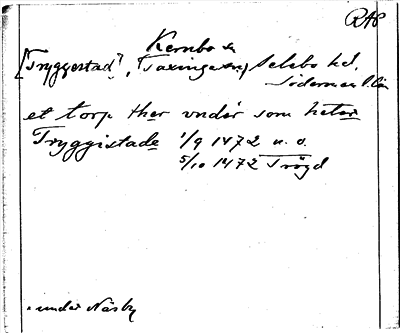 RAP
Kernbo sn
[Tryggestad?, Taxinge sn) Selebo hd,
Södermanl. län
et torp ther vndér som heter
Tryggistade 1/9 1472 n. o.
5/10 1472 Trögd
under Näsby